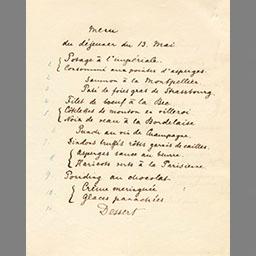 Menu
du déjeuner du 13. Mai
Potage à l'impériale.
Consommé aux pointes d'asperges.
Saumon à la Montpellier
Pâté de foies gras de Strasbourg.
Filet de boeuf à la
Côtelettes de mouton en villeroi
Noix de veau à la Bordelaise
Punch au vin de Champagne.
Dindons truffés rôtis garnis de cailles.
Asperges sauce au beurre.
Haricots verts à la Parisienne
Pouding au chocolat.
Crème meringuée
Glaces panachées.
Dessert